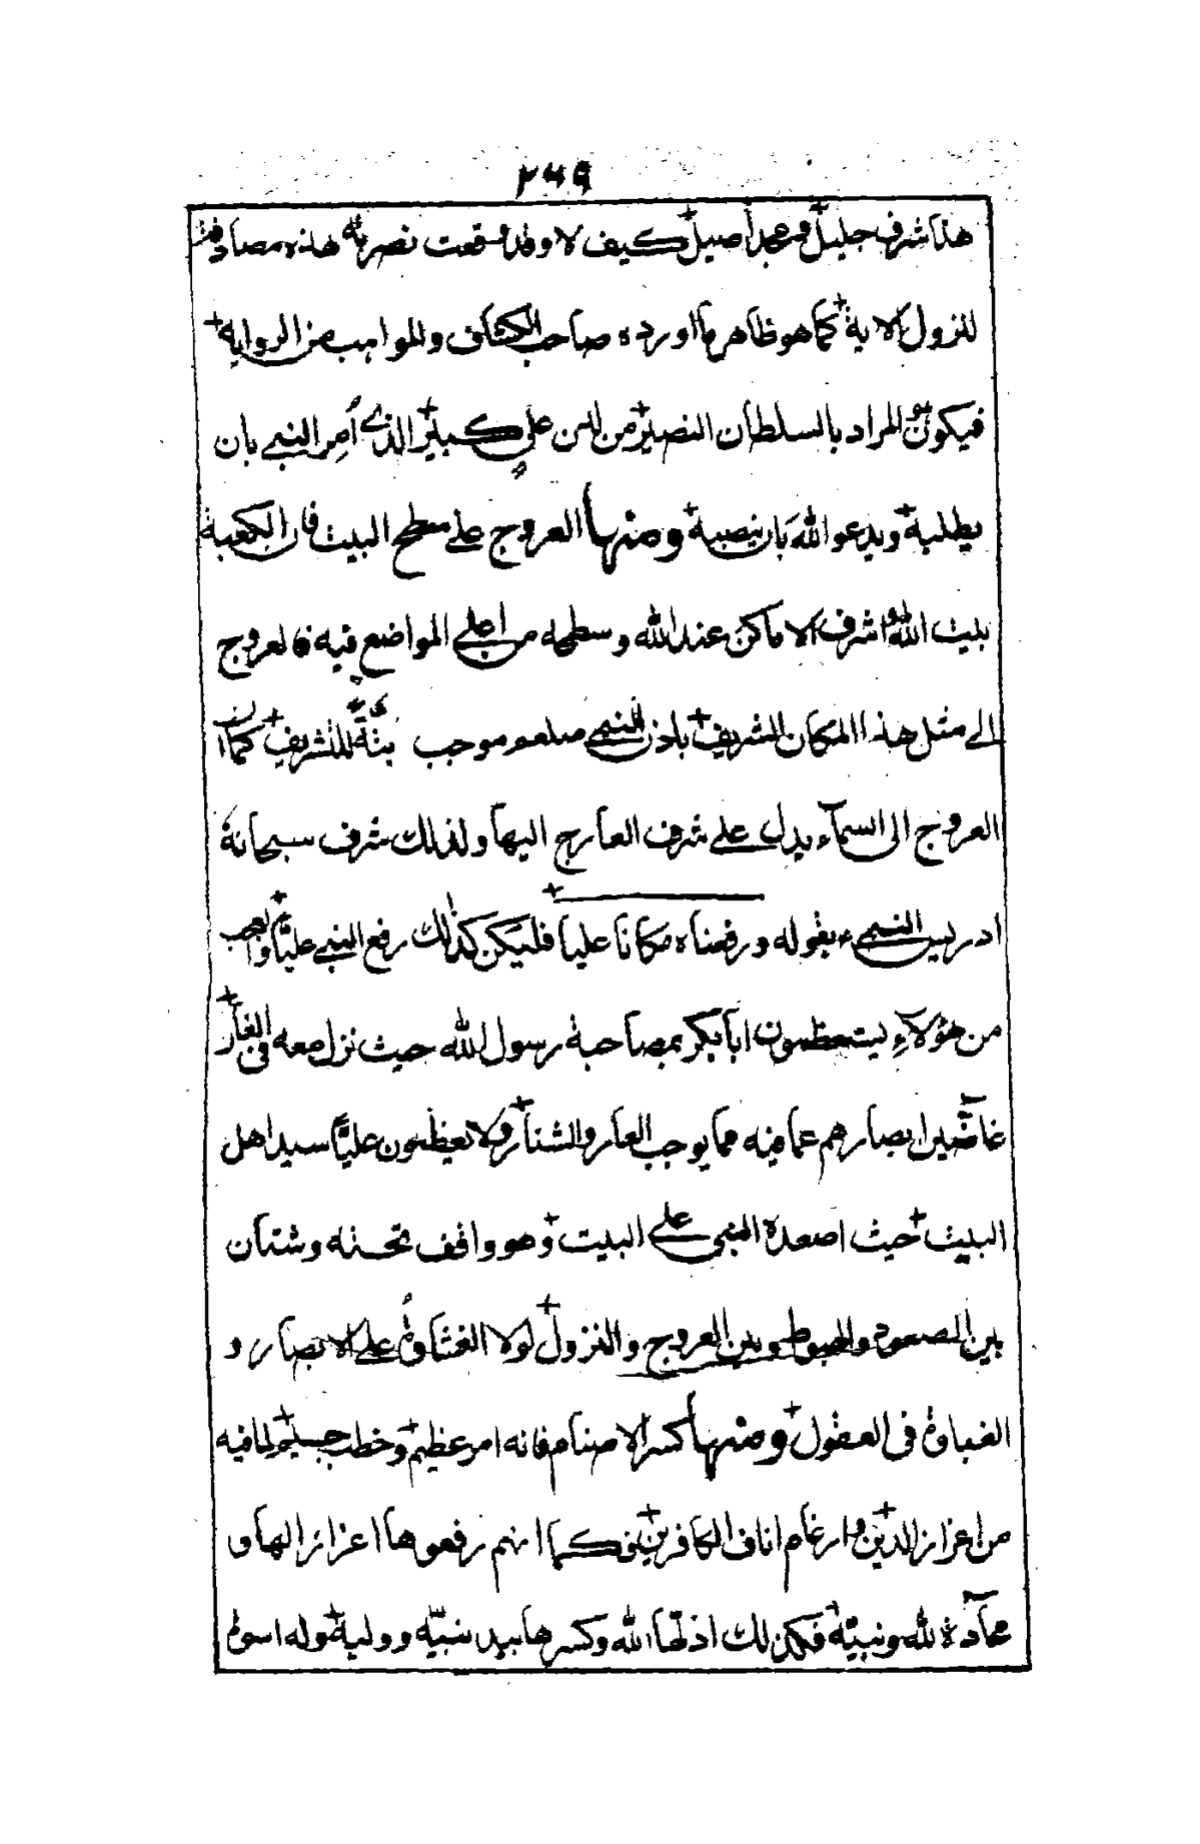 ٢٦٩
هذا شرف جليل ومجد اصيل كيف لا وقد وقعت نصرته هذه مصادفة
لنزول الاية كما هو ظاهر ما اورده صاحب الكشاف والمواهب من الرواية
فيكون المراد بالسلطان النصير من لسن علي كبير الذي اُمِر النبي بان
يطلبه ويدعو الله بان ينصبه ومنها العروج على سطح البيت فان الكعبة
بيت الله اشرف الاماكن عند الله وسطحه من اعلى المواضع فيه فالعروج
الى مثل هذا المكان الشريف باذن النبي صلعم موجب للتشريف كما ان
العروج الى السمآء يدل على شرف العارج اليها ولذلك شرف سبحانه
ادريس النبي ع بقوله ورفعناه مكانا عليا فليكن كذلك رفع النبي عليًّا والعجب
من هؤلآءِ يستعظمون ابا بكر بمصاحبة رسول الله حيث نزل معه فى الغار
غاضّين ابصارهم عما فيه مما يوجب العار والشنار ولا يعظمون عليًّا سيد اهل
البيت حيث اصعده النبي على البيت وهو واقف تحته وشتان
بين الصعود والهبوط وبين العروج والنزول لولا الغشاوة على الابصار و
الغباوة فى العقول ومنها كسر الاصنام فانه امر عظيم وخطب جسيم لما فيه
من اعزاز الدين وارغام اناف الكافرين فكما انهم رفعوها اعزازا لها و
محآدة لله ونبيه فكذلك اذلّها الله وكسرها بيد نبيّه ووليه وله اسوة